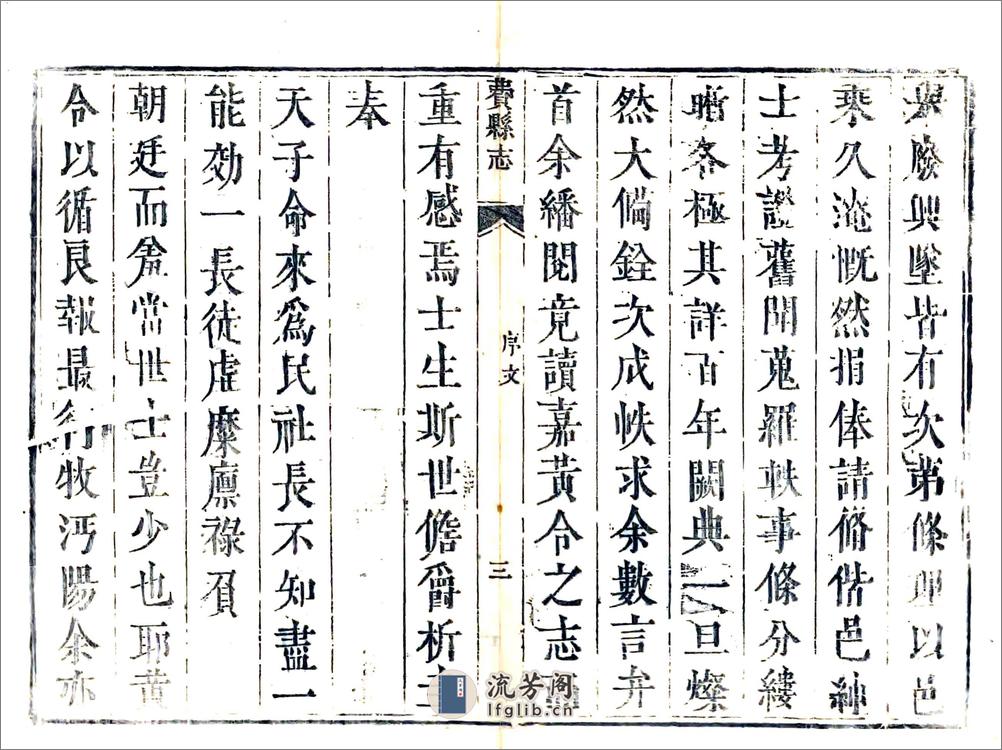 舉廢興墜皆有次第條理以邑
乘久淹慨然捐俸請脩偕邑紳
士考證舊聞蒐羅軼事條分縷
晰各極其詳百年闕典一旦燦
然大備銓次成帙求余數言弁
首余繙閱竟讀嘉黃令之志
費縣志
序文
三
重有感焉士生斯世儋爵析
奉
天子命來爲民社長不知盡一
能効一長徒虛糜廩祿負
朝廷而羞當世士豈少也耶黃
令以循良報最行牧沔陽余亦
流芳阁
lfglib.cn